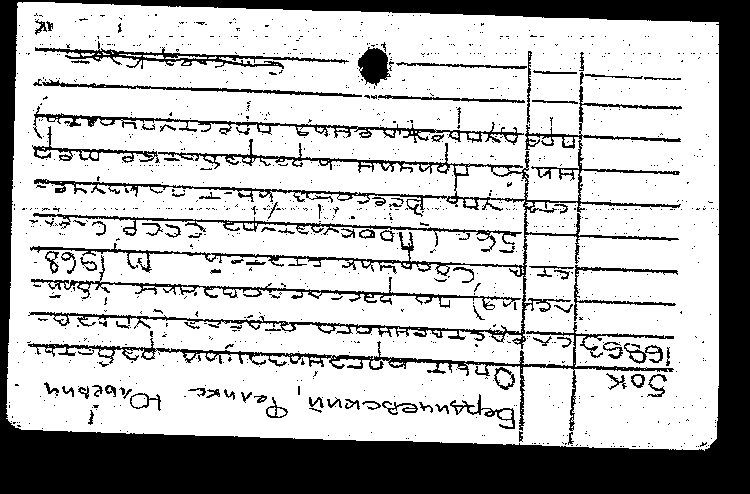 Бердичевский, Феликс Юльевич
50К Опыт организации работы
16863 следственного отдела (управле-
ления) по расследованию убийств
ст. в Сборник статей. М, 1968
56с (Прокуратура СССР След-
ств упр Всесоюз ин-т по изуче-
нию причин и разработке мер
предупреждения преступности)